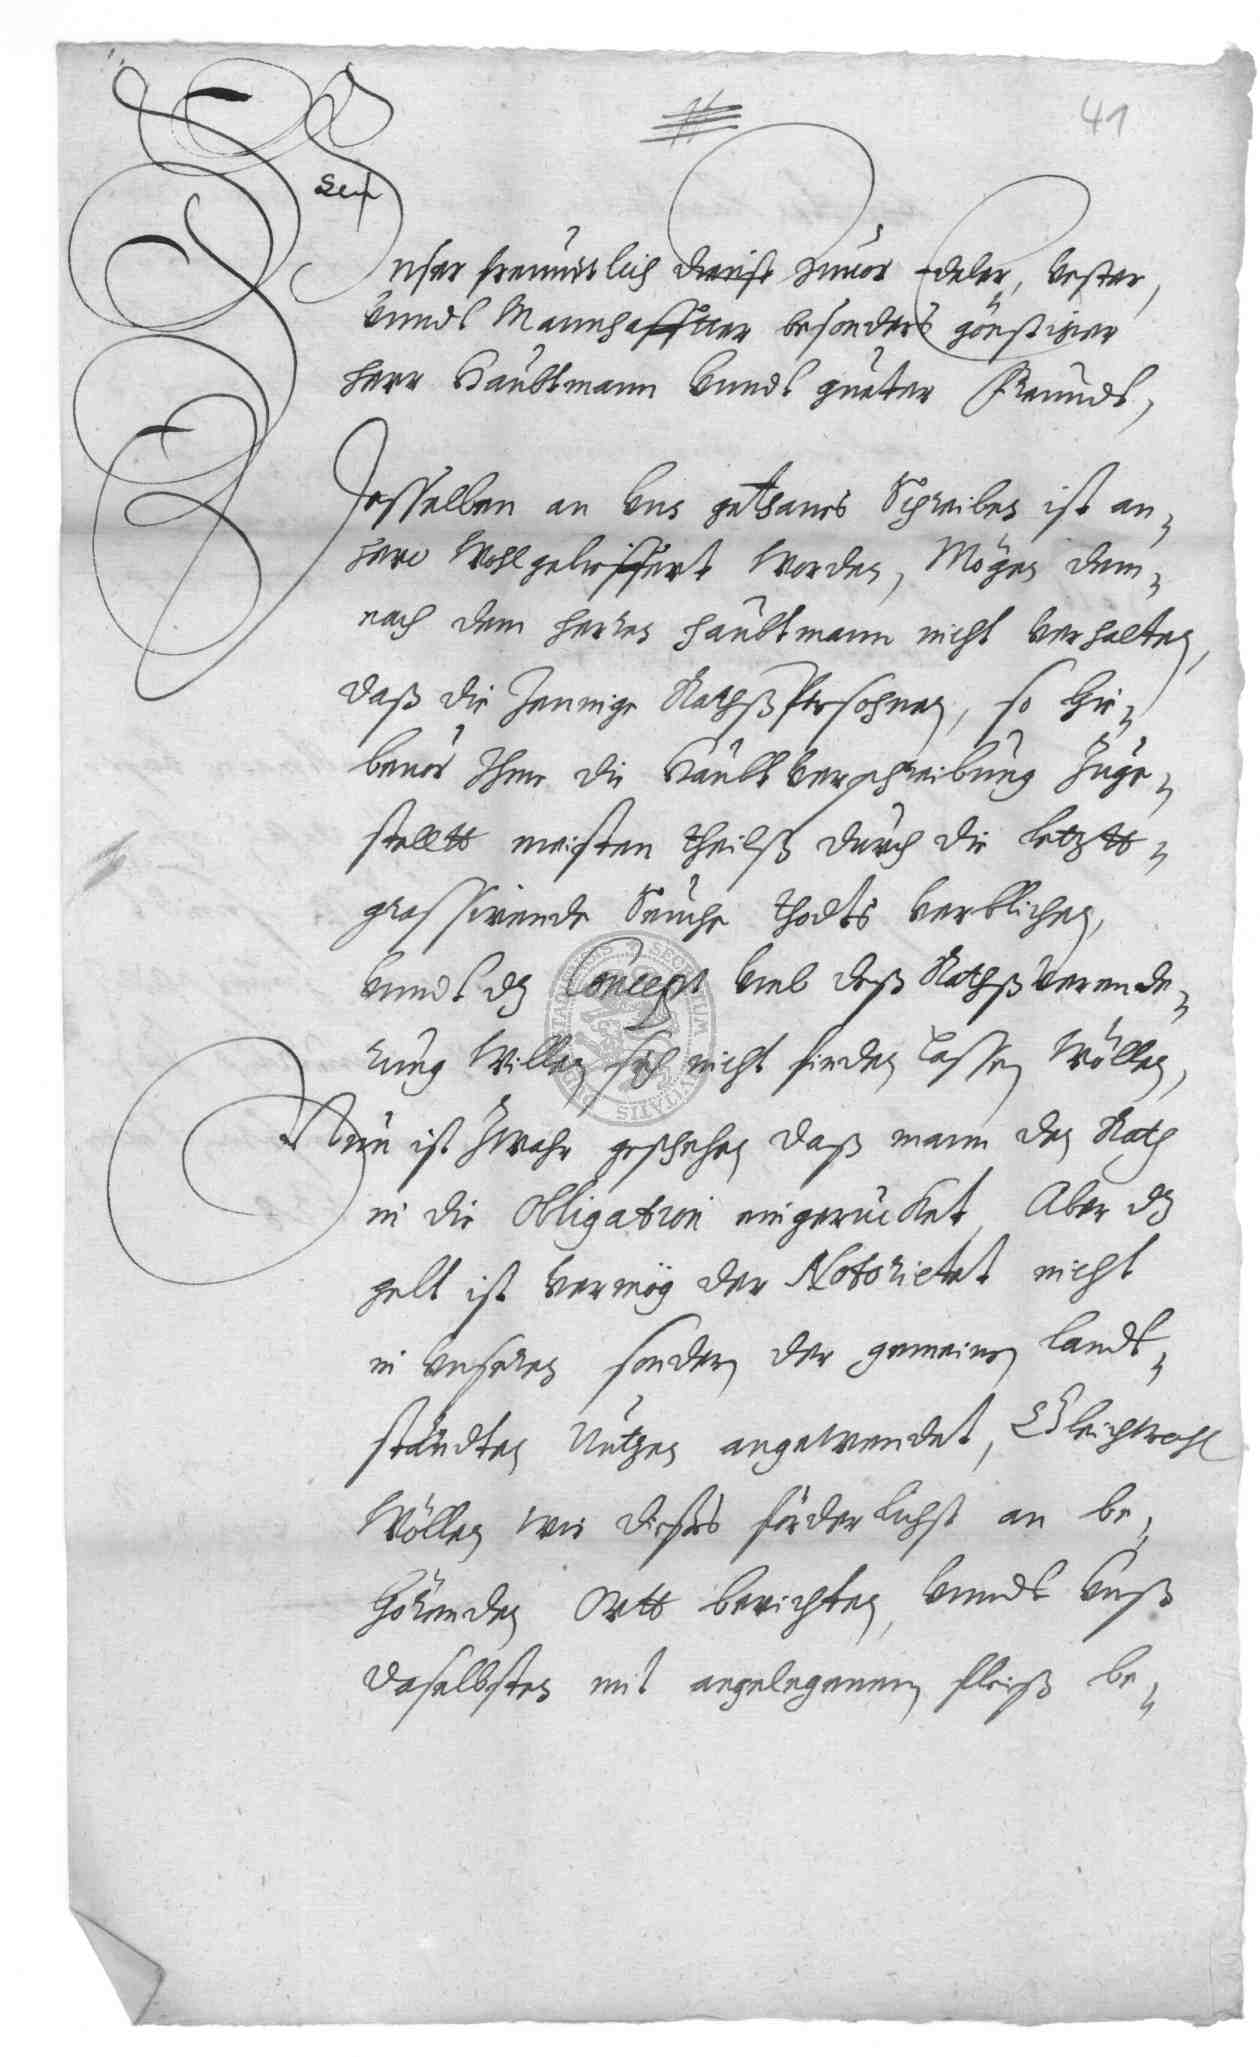 41
Unser freundtlich dienst zuuor Edeler, Vester,
Vnndt Mannhaffter besonders gönstiger
herr Haubtmann Vnndt gueter Freundt,
Desselben an Vns gethanes Schreiben ist an¬
hero Wohl geliffert Worden, Mögen dem¬
nach dem herren haubtmann nicht Verhalten,
daß die Jennige RathßPersohnen, so hie¬
beuor Ihme die HaubtVerschreibung Zuge¬
stellt meisten theilß durch die letzt¬
grassirende Seuche thodts Verblichen,
Vnndt dz Concept Vmb deß RathßVerende¬
rung Willen sich nicht finden Lassen Wöllen,
Nun ist Zwahr geschehen daß mann den Rath
in die Obligation eingerucket, Aber dz
gelt ist Vermög der Notorietet nicht
in Vnseren sondern der gemeinen landt¬
ständten Nutzen angewendet, Gleichwohl
Wöllen wir dieses förderlichst an be¬
hörenden Ortt berichten, Vnndt Vnß
daselbsten mit angelegenem fleiß be¬